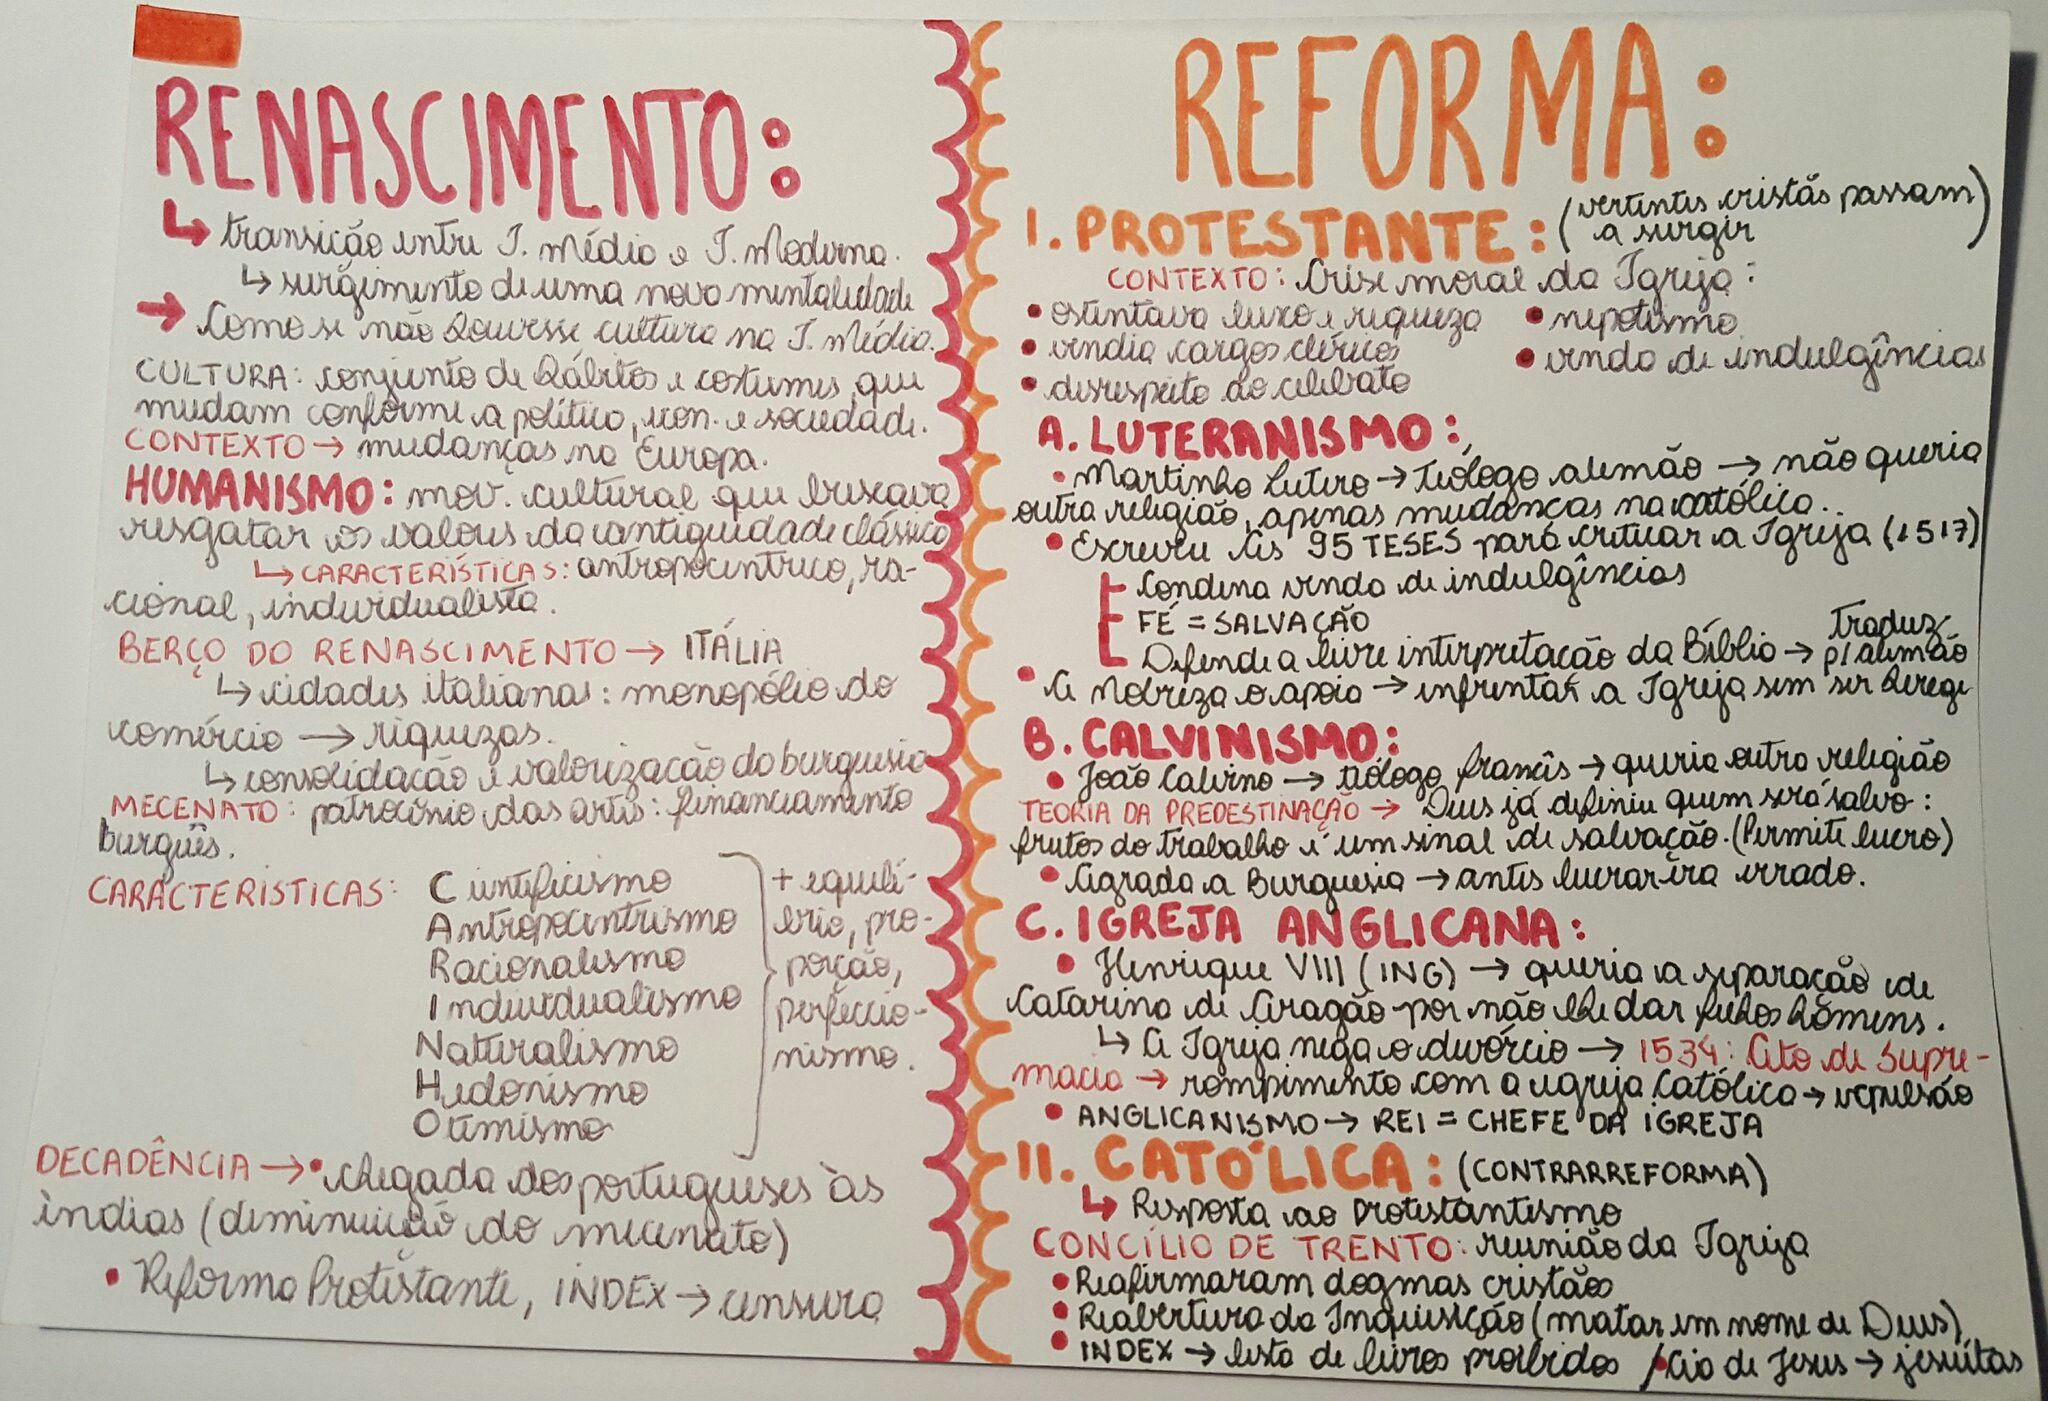 RENASCIMENTO:
↳ transição entre I. Média e I. Moderna.
↳ surgimento de uma nova mentalidade
→ Como se não houvesse cultura na I. Média.
CULTURA: conjunto de hábitos e costumes, que
mudam conforme a política, econ. e sociedade.
CONTEXTO → mudanças na Europa.
HUMANISMO: mov. cultural que buscava
resgatar os valores da antiguidade clássica
↳ CARACTERÍSTICAS: antropocêntrico, ra-
cional, individualista.
BERÇO DO RENASCIMENTO → ITÁLIA
↳ cidades italianas: monopólio do
comércio → riquezas.
↳ consolidação e valorização da burguesia
MECENATO: patrocínio das artes: financiamento
burguês.
CARACTERÍSTICAS: Cientificismo
Antropocentrismo
Racionalismo
Individualismo
Naturalismo
Hedonismo
Otimismo
+ equilí-
brio, pro-
porção,
perfeccio-
nismo.
DECADÊNCIA → • chegada dos portugueses às
índias (diminuição do mecenato)
• Reforma Protestante, INDEX → censura
REFORMA:
I. PROTESTANTE: (vertentes cristãs passam
a surgir)
CONTEXTO: Crise moral da Igreja:
• ostentava luxo e riqueza • nepotismo
• vendia cargos cléricos • venda de indulgências
• desrespeito ao celibato
A. LUTERANISMO:
• Martinho Lutero → teólogo alemão → não queria
outra religião, apenas mudanças na católica..
• Escreveu As 95 TESES para criticar a Igreja (1517)
Condena venda de indulgências
FÉ = SALVAÇÃO
Defende a livre interpretação da Bíblia → traduz
p/ alemão
• A Nobreza o apoia → enfrentar a Igreja sem ser herege
B. CALVINISMO:
• João Calvino → teólogo francês → queria outra religião
TEORIA DA PREDESTINAÇÃO → Deus já definiu quem será salvo:
frutos do trabalho é um sinal de salvação. (Permite lucro)
• Agrada a Burguesia → antes lucrar era errado.
C. IGREJA ANGLICANA:
• Henrique VIII (ING) → queria a separação de
Catarina de Aragão por não lhe dar filhos homens.
↳ A Igreja nega o divórcio → 1534: Ato de Supre-
macia → rompimento com a igreja Católica → expulsão
• ANGLICANISMO → REI = CHEFE DA IGREJA
II. CATÓLICA: (CONTRARREFORMA)
↳ Resposta ao Protestantismo
CONCÍLIO DE TRENTO: reunião da Igreja
• Reafirmaram dogmas cristãos
• Reabertura da Inquisição (matar em nome de Deus)
• INDEX → lista de livros proibidos / • Cia de Jesus → jesuítas